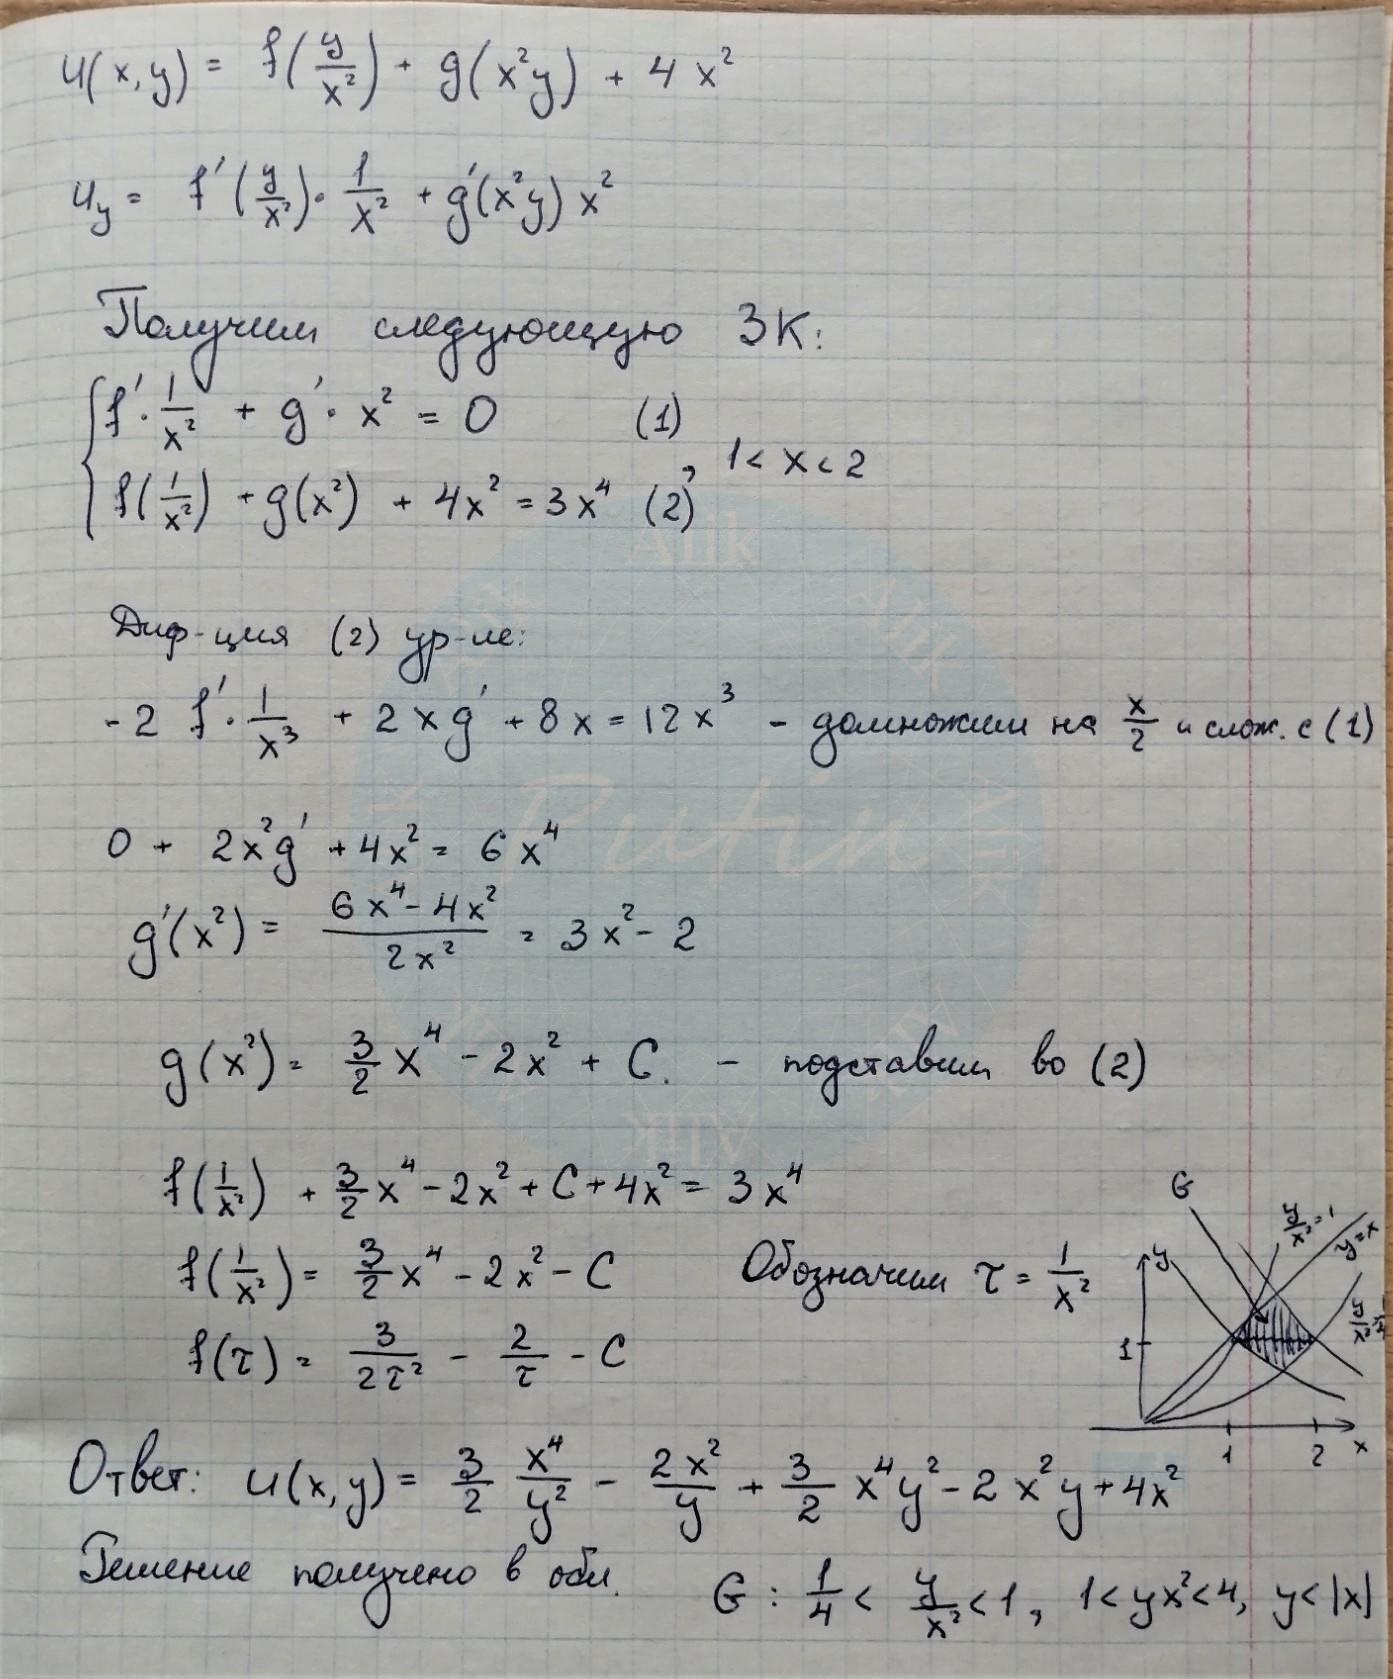 u(x,y) = f(y/x²) + g(x²y) + 4x²
u_y = f'(y/x²)·1/x² + g'(x²y)x²
Получим следующую ЗК:
{ f'·1/x² + g'·x² = 0 (1)
f(1/x²) + g(x²) + 4x² = 3x⁴ (2), 1<x<2
Диф-ция (2) ур-ие:
-2 f'·1/x³ + 2xg' + 8x = 12x³ - домножим на x/2 и слож. с (1)
0 + 2x²g' + 4x² = 6x⁴
g'(x²) = (6x⁴-4x²)/(2x²) = 3x²-2
g(x²) = 3/2 x⁴ - 2x² + C. - подставим во (2)
f(1/x²) + 3/2 x⁴ - 2x² + C + 4x² = 3x⁴
f(1/x²) = 3/2 x⁴ - 2x² - C Обозначим τ = 1/x²
f(τ) = 3/(2τ²) - 2/τ - C
G
y/x²=1
y=x
y/x²=1/4
y
1
1 2 x
Ответ: u(x,y) = 3/2 x⁴/y² - 2x²/y + 3/2 x⁴y² - 2x²y + 4x²
Решение получено в обл. G: 1/4 < y/x² < 1, 1<yx²<4, y<|x|
Alik
Alik
Alik
Alik
Putin
Alik
Alik